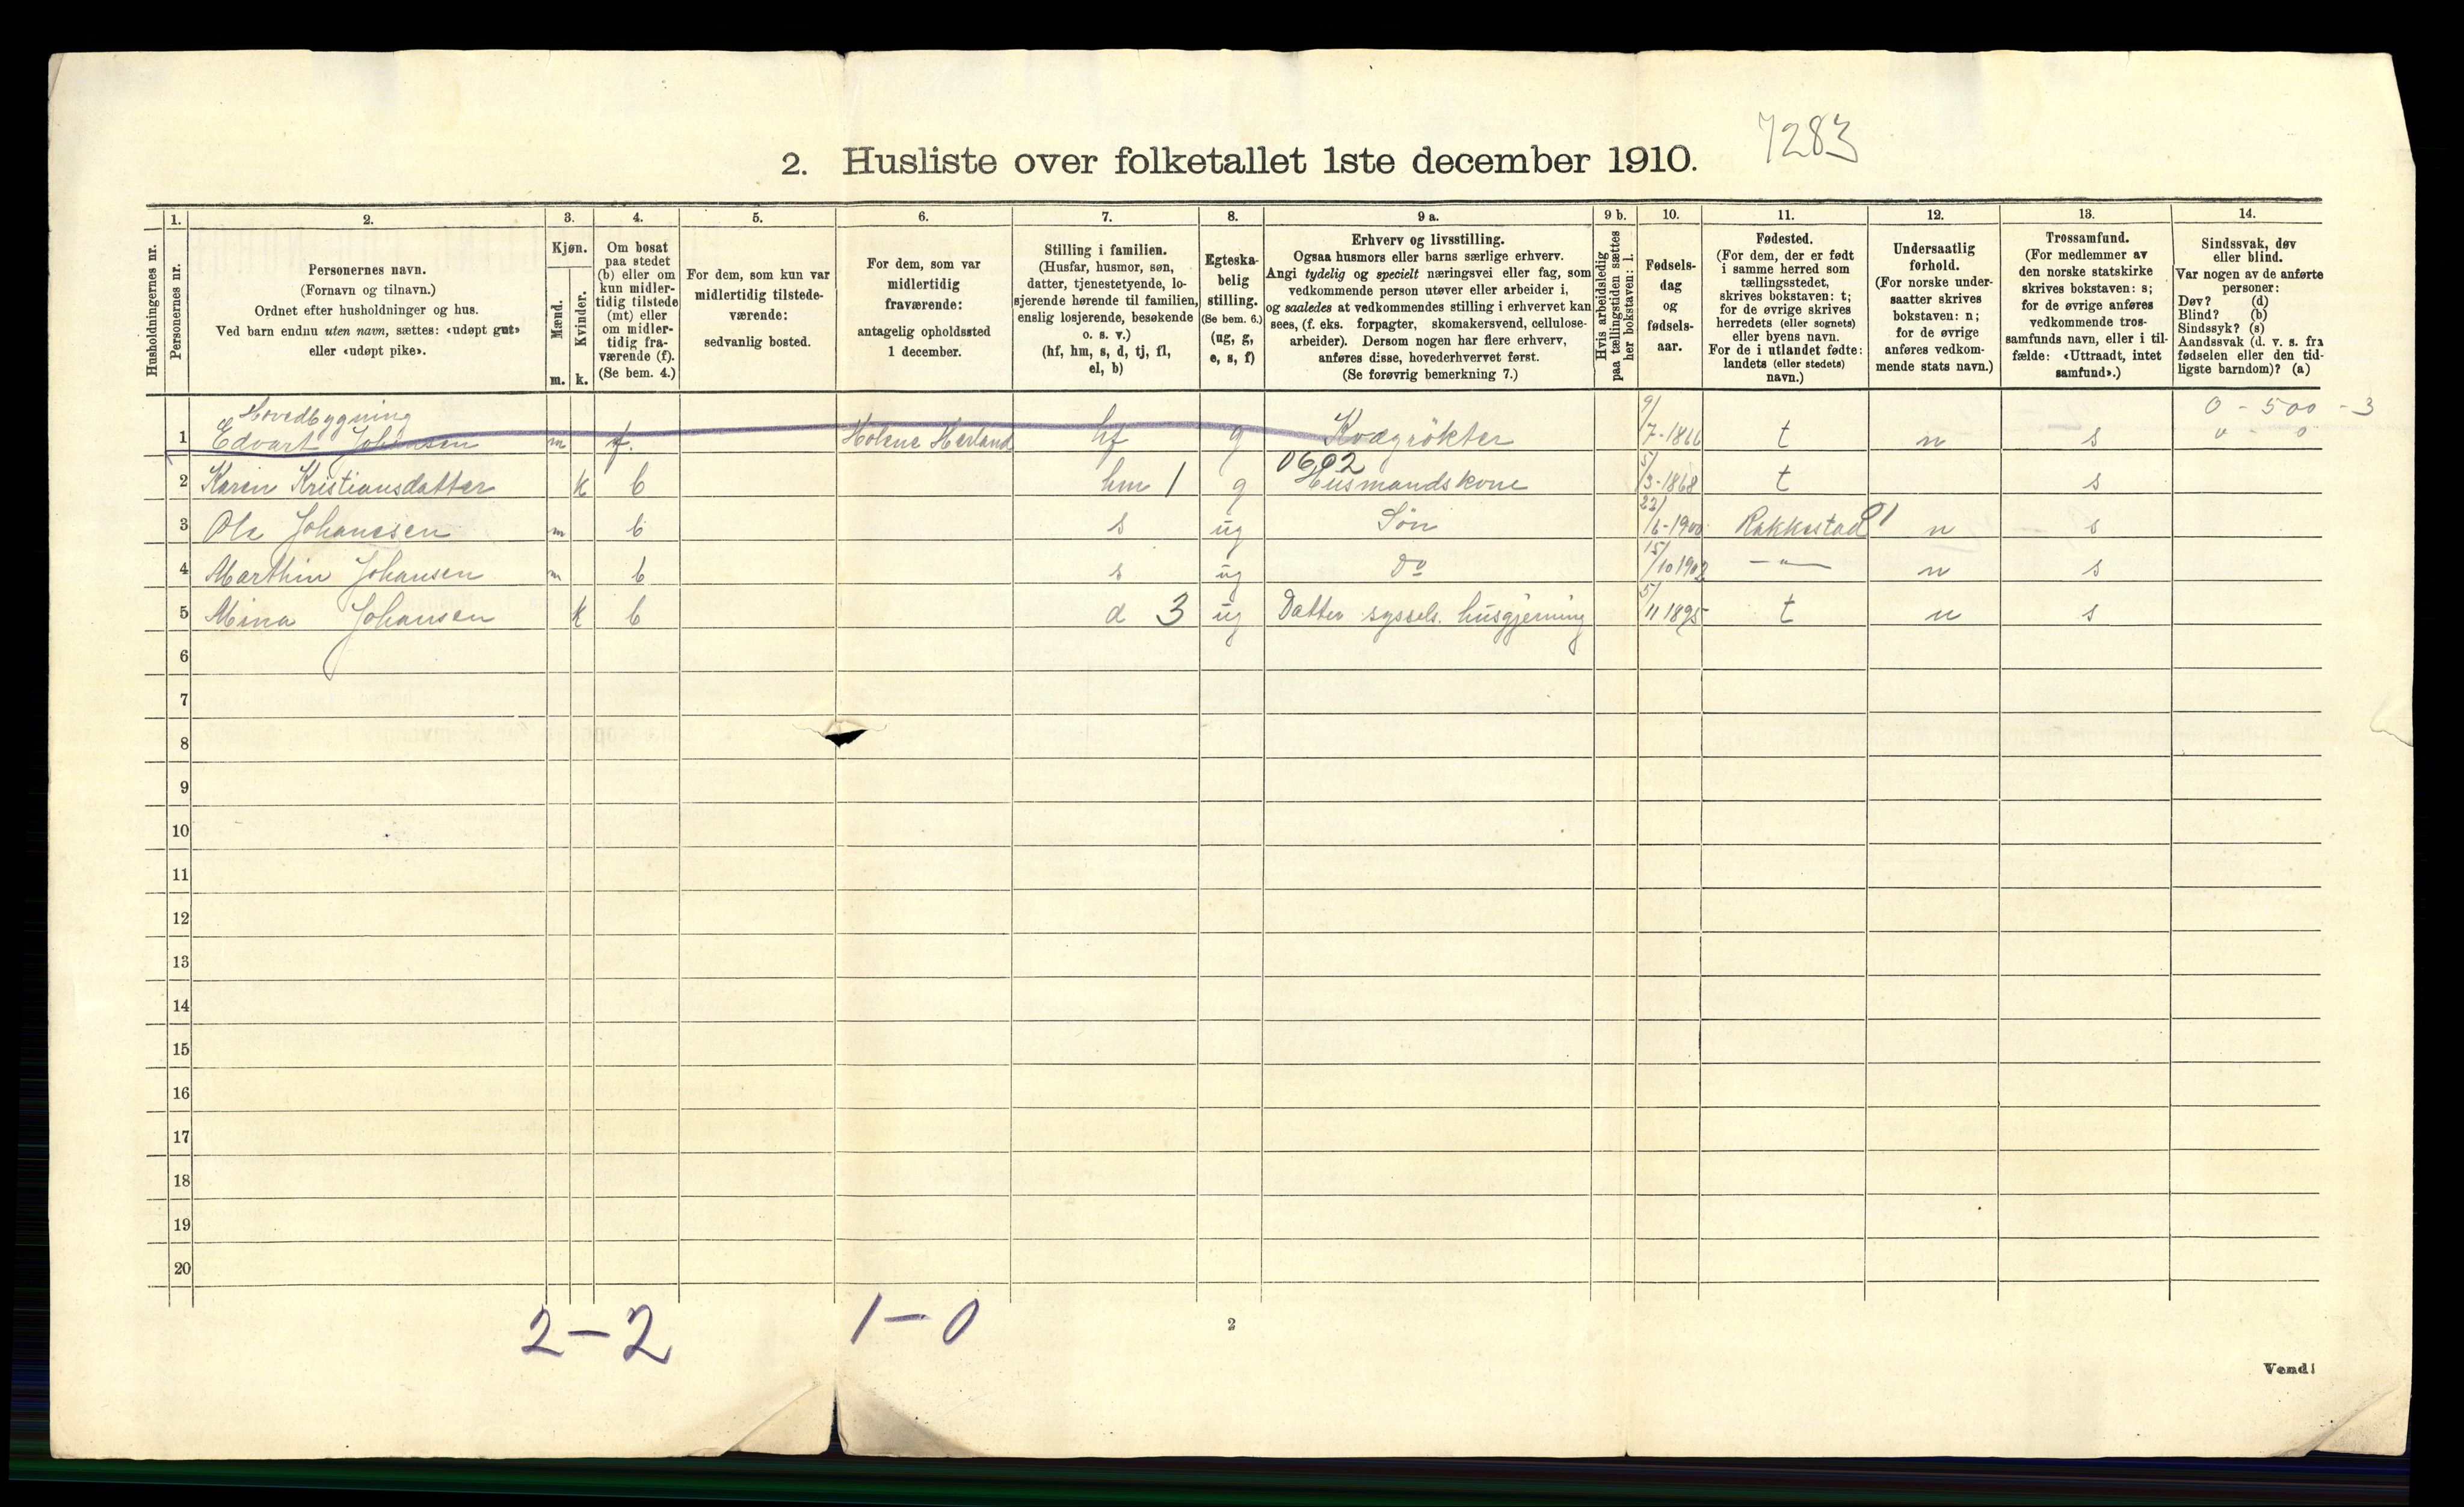 2. Husliste over folketallet 1ste december 1910. 7283
1. 2. 3. 4. 5. 6. 7. 8. 9 a. 9 b. 10. 11. 12. 13. 14.
Husholdningernes nr.
Personernes nr.
Personernes navn.
(Fornavn og tilnavn.)
Ordnet efter husholdninger og hus.
Ved barn endnu uten navn, sættes: «udøpt gut»
eller «udøpt pike».
Kjøn.
Mænd.
Kvinder.
m. k.
Om bosat
paa stedet
(b) eller om
kun midler-
tidig tilstede
(mt) eller
om midler-
tidig fra-
værende (f).
(Se bem. 4.)
For dem, som kun var
midlertidig tilstede-
værende:
sedvanlig bosted.
For dem, som var
midlertidig
fraværende:
antagelig opholdssted
1 december.
Stilling i familien.
(Husfar, husmor, søn,
datter, tjenestetyende, lo-
sjerende hørende til familien,
enslig losjerende, besøkende
o. s. v.)
(hf, hm, s, d, tj, fl,
el, b)
Egteska-
belig
stilling.
(Se bem. 6.)
(ug, g,
e, s, f)
Erhverv og livsstilling.
Ogsaa husmors eller barns særlige erhverv.
Angi tydelig og specielt næringsvei eller fag, som
vedkommende person utøver eller arbeider i,
og saaledes at vedkommendes stilling i erhvervet kan
sees, (f. eks. forpagter, skomakersvend, cellulose-
arbeider). Dersom nogen har flere erhverv,
anføres disse, hovederhvervet først.
(Se forøvrig bemerkning 7.)
Hvis arbeidsledig
paa tællingstiden sættes
her bokstaven: l.
Fødsels-
dag
og
fødsels-
aar.
Fødested.
(For dem, der er født
i samme herred som
tællingsstedet,
skrives bokstaven: t;
for de øvrige skrives
herredets (eller sognets)
eller byens navn.
For de i utlandet fødte:
landets (eller stedets)
navn.)
Undersaatlig
forhold.
(For norske under-
saatter skrives
bokstaven: n;
for de øvrige
anføres vedkom-
mende stats navn.)
Trossamfund.
(For medlemmer av
den norske statskirke
skrives bokstaven: s;
for de øvrige anføres
vedkommende tros-
samfunds navn, eller i til-
fælde: «Uttraadt, intet
samfund».)
Sindssvak, døv
eller blind.
Var nogen av de anførte
personer:
Døv? (d)
Blind? (b)
Sindssyk? (s)
Aandssvak (d. v. s. fra
fødselen eller den tid-
ligste barndom)? (a)
Hovedbygning 0 - 500 - 3
1 Edvart Johansen m f. Holene Herland hf g Kvægrökter 9/7-1866 t n s 0 - 0
0602
2 Karen Kristiansdatter k b hm 1 g Husmandskone 5/3-1868 t s
3 Ole Johansen m b s ug Sön 22/6-1900 Rakkestad 01 n s
4 Marthin Johansen m b s ug Do 15/10 1902 —"— n s
5 Mina Johansen k b d 3 ug Datter syssels. husgjerning 5/11 1895 t n s
6
7
8
9
10
11
12
13
14
15
16
17
18
19
20
2-2 1-0
2
Vend!